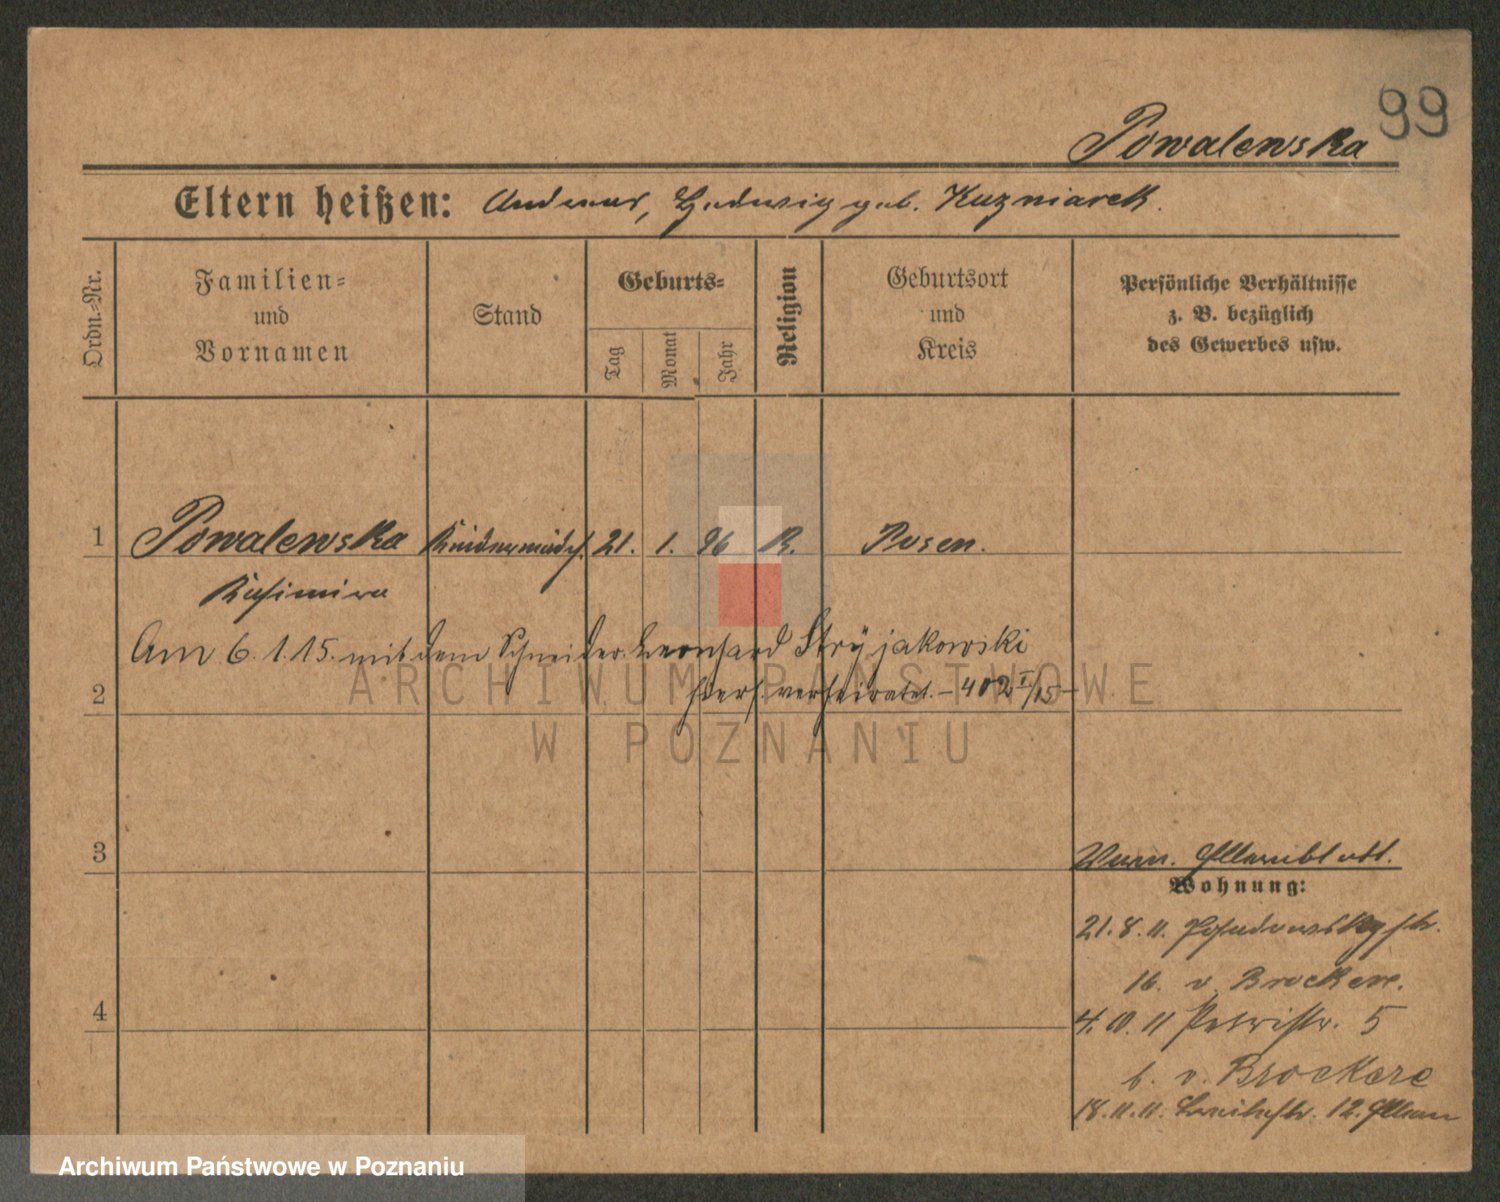 99
Powalewska
Eltern heißen: Andreas, Hedwig geb. Kuzniarek.
Ordn.-Nr.
Familien=
und
Vornamen
Stand
Geburts=
Tag
Monat
Jahr
Religion
Geburtsort
und
Kreis
Persönliche Verhältnisse
z. B. bezüglich
des Gewerbes usw.
1 Powalewska Kindermädch. 21. 1. 96 R. Posen.
Kasimira
Am 6.1.15. mit dem Schneider Leonhard Stryjakowski
2 hier verheiratet. - 402 I/15 -
3
Elternblatt.
Wohnung:
21.8.11. Posadowskystr.
16. v. Brockere.
4
4.10.11 Petristr. 5
b. v. Brockere
18.11.11. Breitestr. 12. Eltern
ARCHIWUM PAŃSTWOWE
W POZNANIU
Archiwum Państwowe w Poznaniu